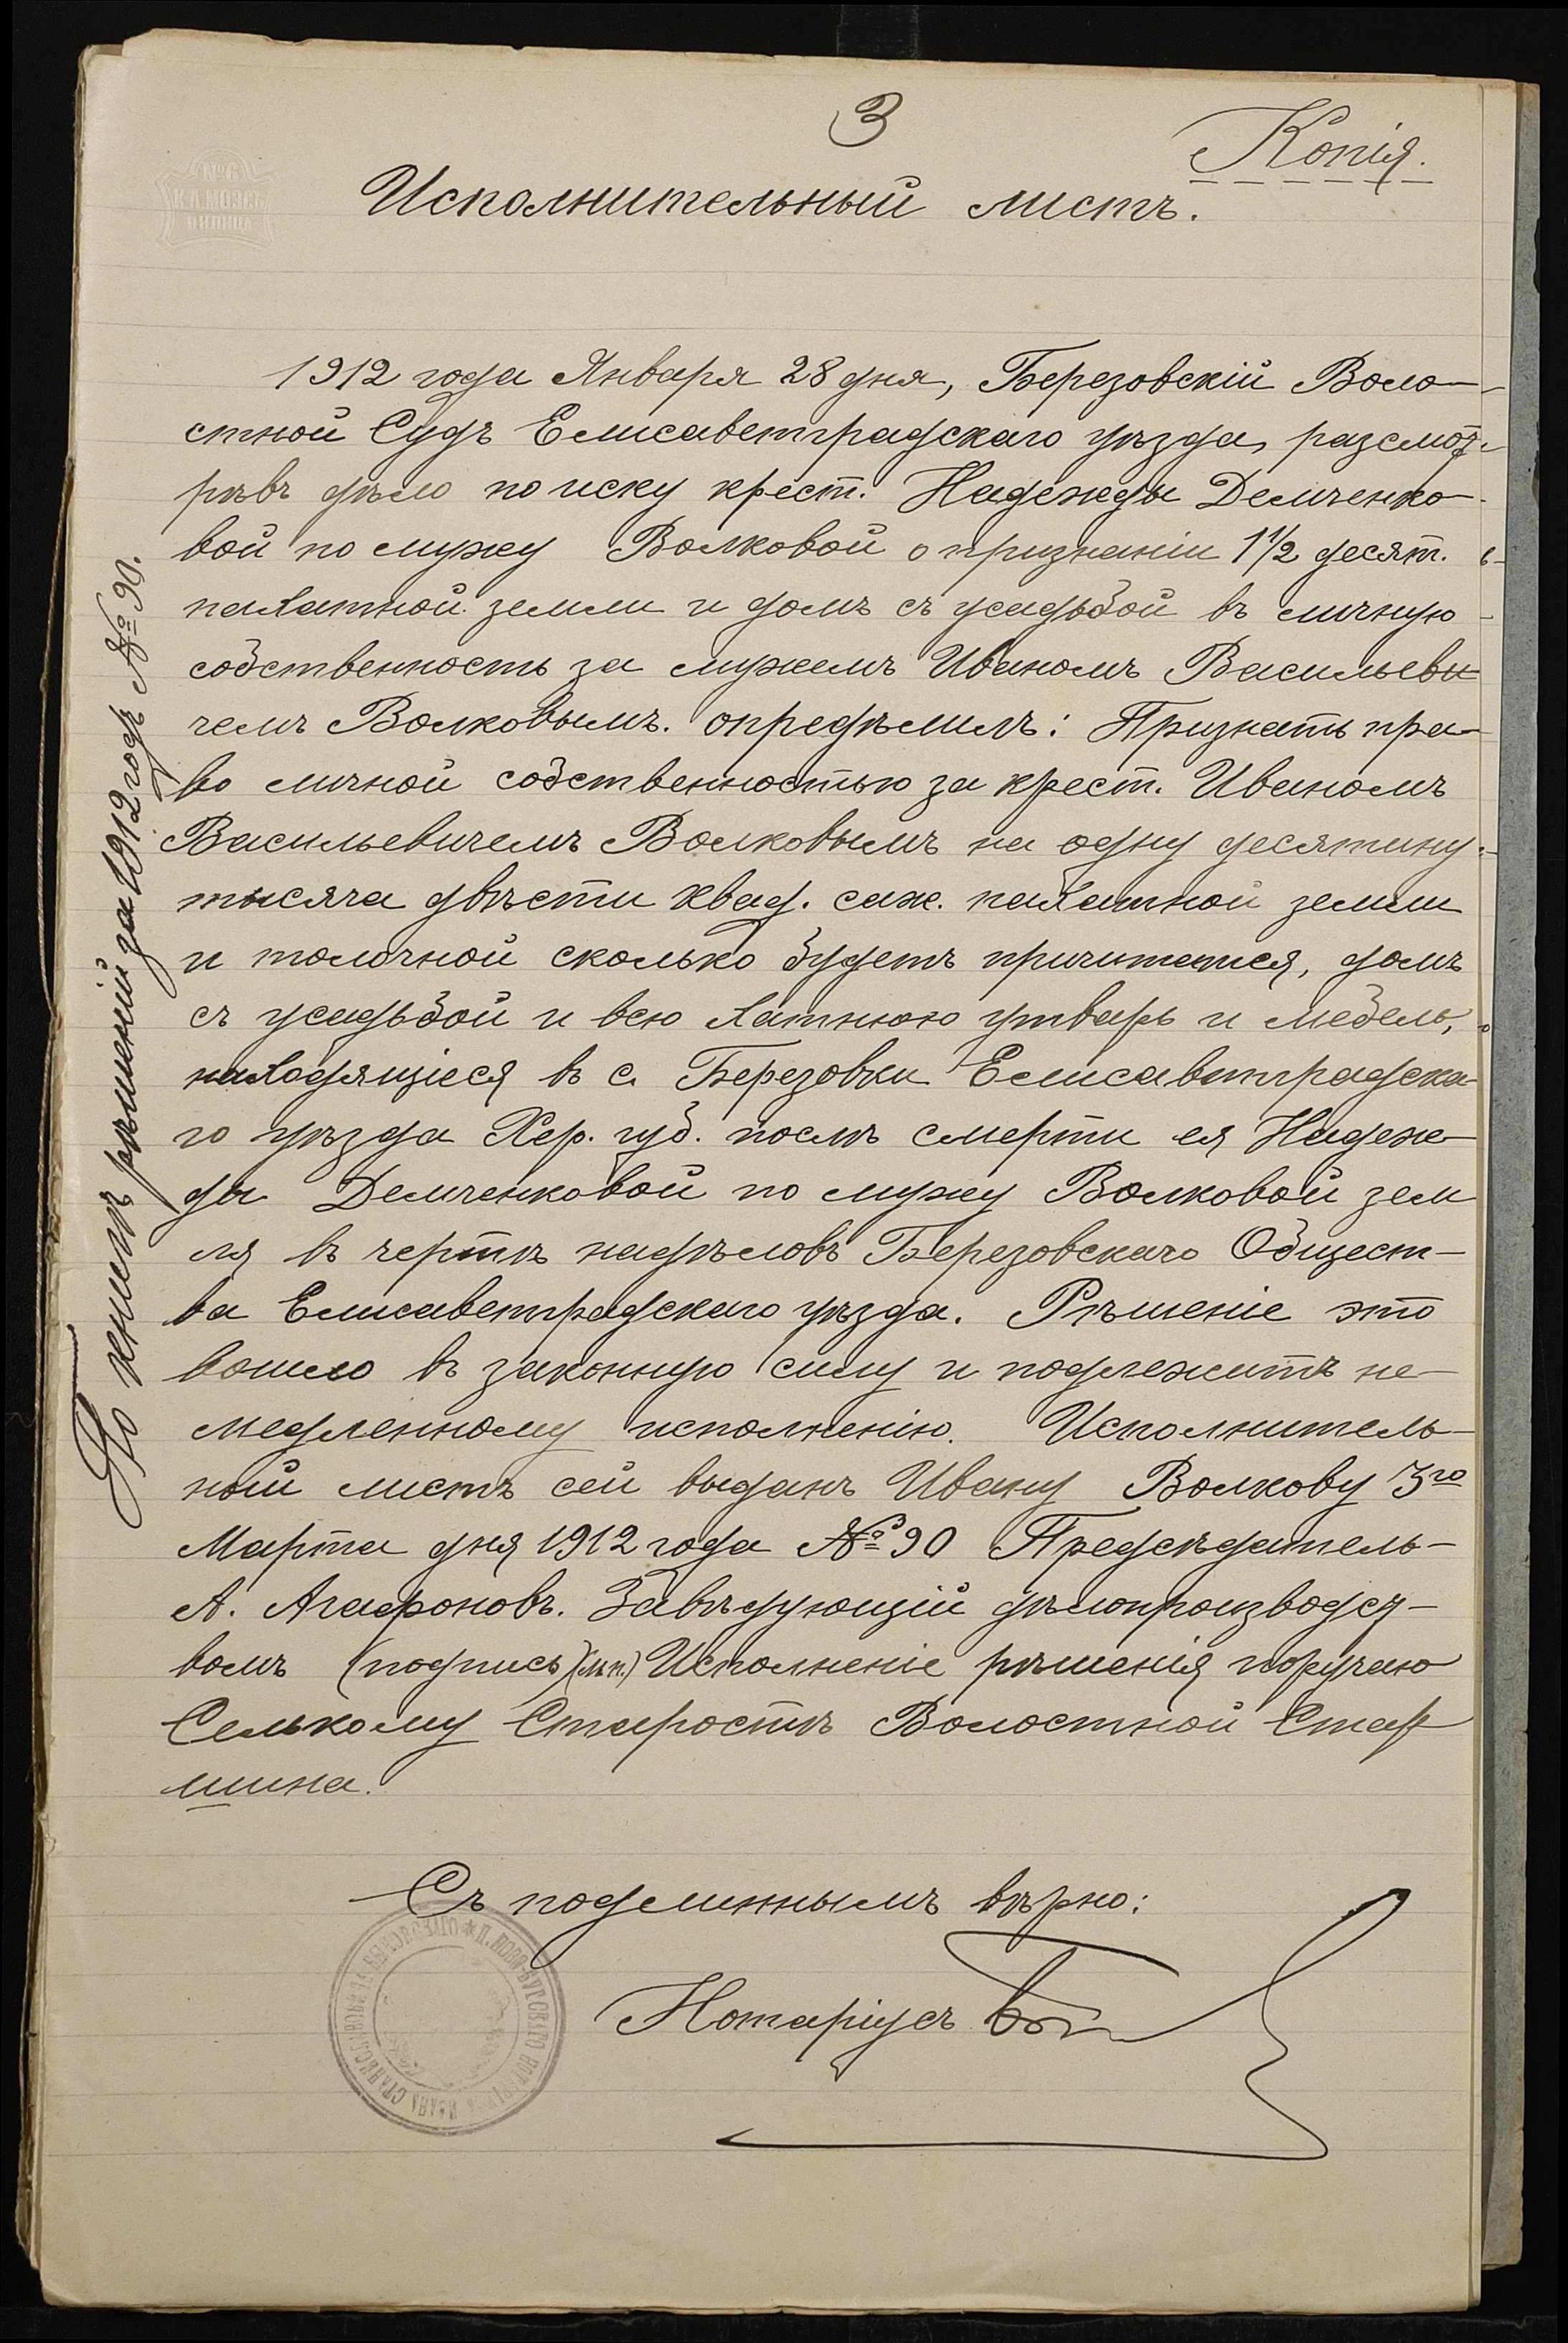 3
Копія.
№6
Исполнительный листъ.
1912 года Января 28 дня, Березовскій Воло-
стной Судъ Елисаветградскаго уѣзда, разсмот-
рѣвъ дѣло по иску крест. Надежды Демченко-
вой по мужу Волковой о признаніи 1 1/2 десят.
пахатной земли и домъ съ усадьбой въ личную
собственность за мужемъ Иваномъ Васильеви
чемъ Волковымъ. опредѣлилъ: Признать пра-
во личной собственностью за крест. Иваномъ
Васильевичемъ Волковымъ на одну десятину
тысяча двѣсти квад. саж. пахатной земли
и толочной сколько будетъ причитатся, домъ
съ усадьбой и всю хатнюю утварь и мебель,
находящіеся въ с. Березовки Елисаветградска-
го уѣзда Хер. губ. послѣ смерти ея Надеж-
ды Демченковой по мужу Волковой зем
ля въ чертѣ надѣловъ Березовскаго Общест-
ва Елисаветградскаго уѣзда. Рѣшеніе это
вошло въ законную силу и подлежитъ не-
медленному исполненію. Исполнитель-
ный листъ сей выданъ Ивану Волкову 3го
Марта дня 1912 года № 90 Предсѣдатель-
А. Агафоновъ. Завѣдующій дѣлопроизводст-
вомъ (подпись) (м.п.) Исполненіе рѣшенія поручаю
Селькому Старостѣ Волостной Стар
шина.
Съ подлиннымъ вѣрно:
Нотаріусъ
По книгѣ рѣшеній за 1912 годъ № 90.